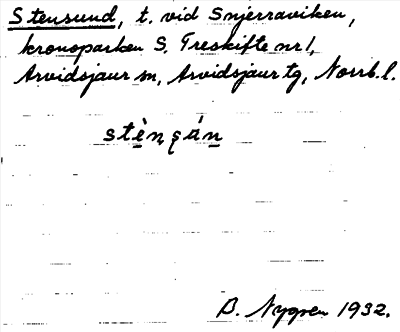 Stensund, t. vid Snjerraviken,
kronoparken S. Treskifte nr 1,
Arvidsjaur sn, Arvidsjaur tg, Norrb. l.
stènsán
B. Nygren 1932.